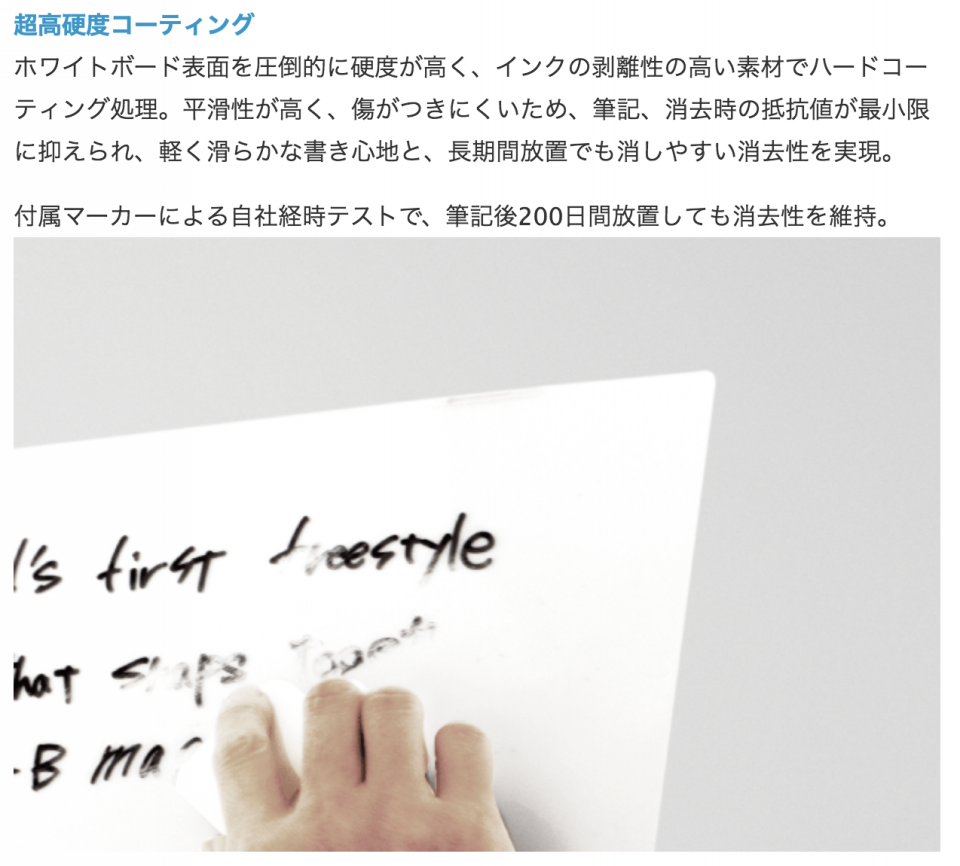 超高硬度コーティング
ホワイトボード表面を圧倒的に硬度が高く、インクの剥離性の高い素材でハードコー
ティング処理。平滑性が高く、傷がつきにくいため、筆記、消去時の抵抗値が最小限
に抑えられ、軽く滑らかな書き心地と、長期間放置でも消しやすい消去性を実現。
付属マーカーによる自社経時テストで、筆記後200日間放置しても消去性を維持。
l's first freestyle
hat snaps
-B ma